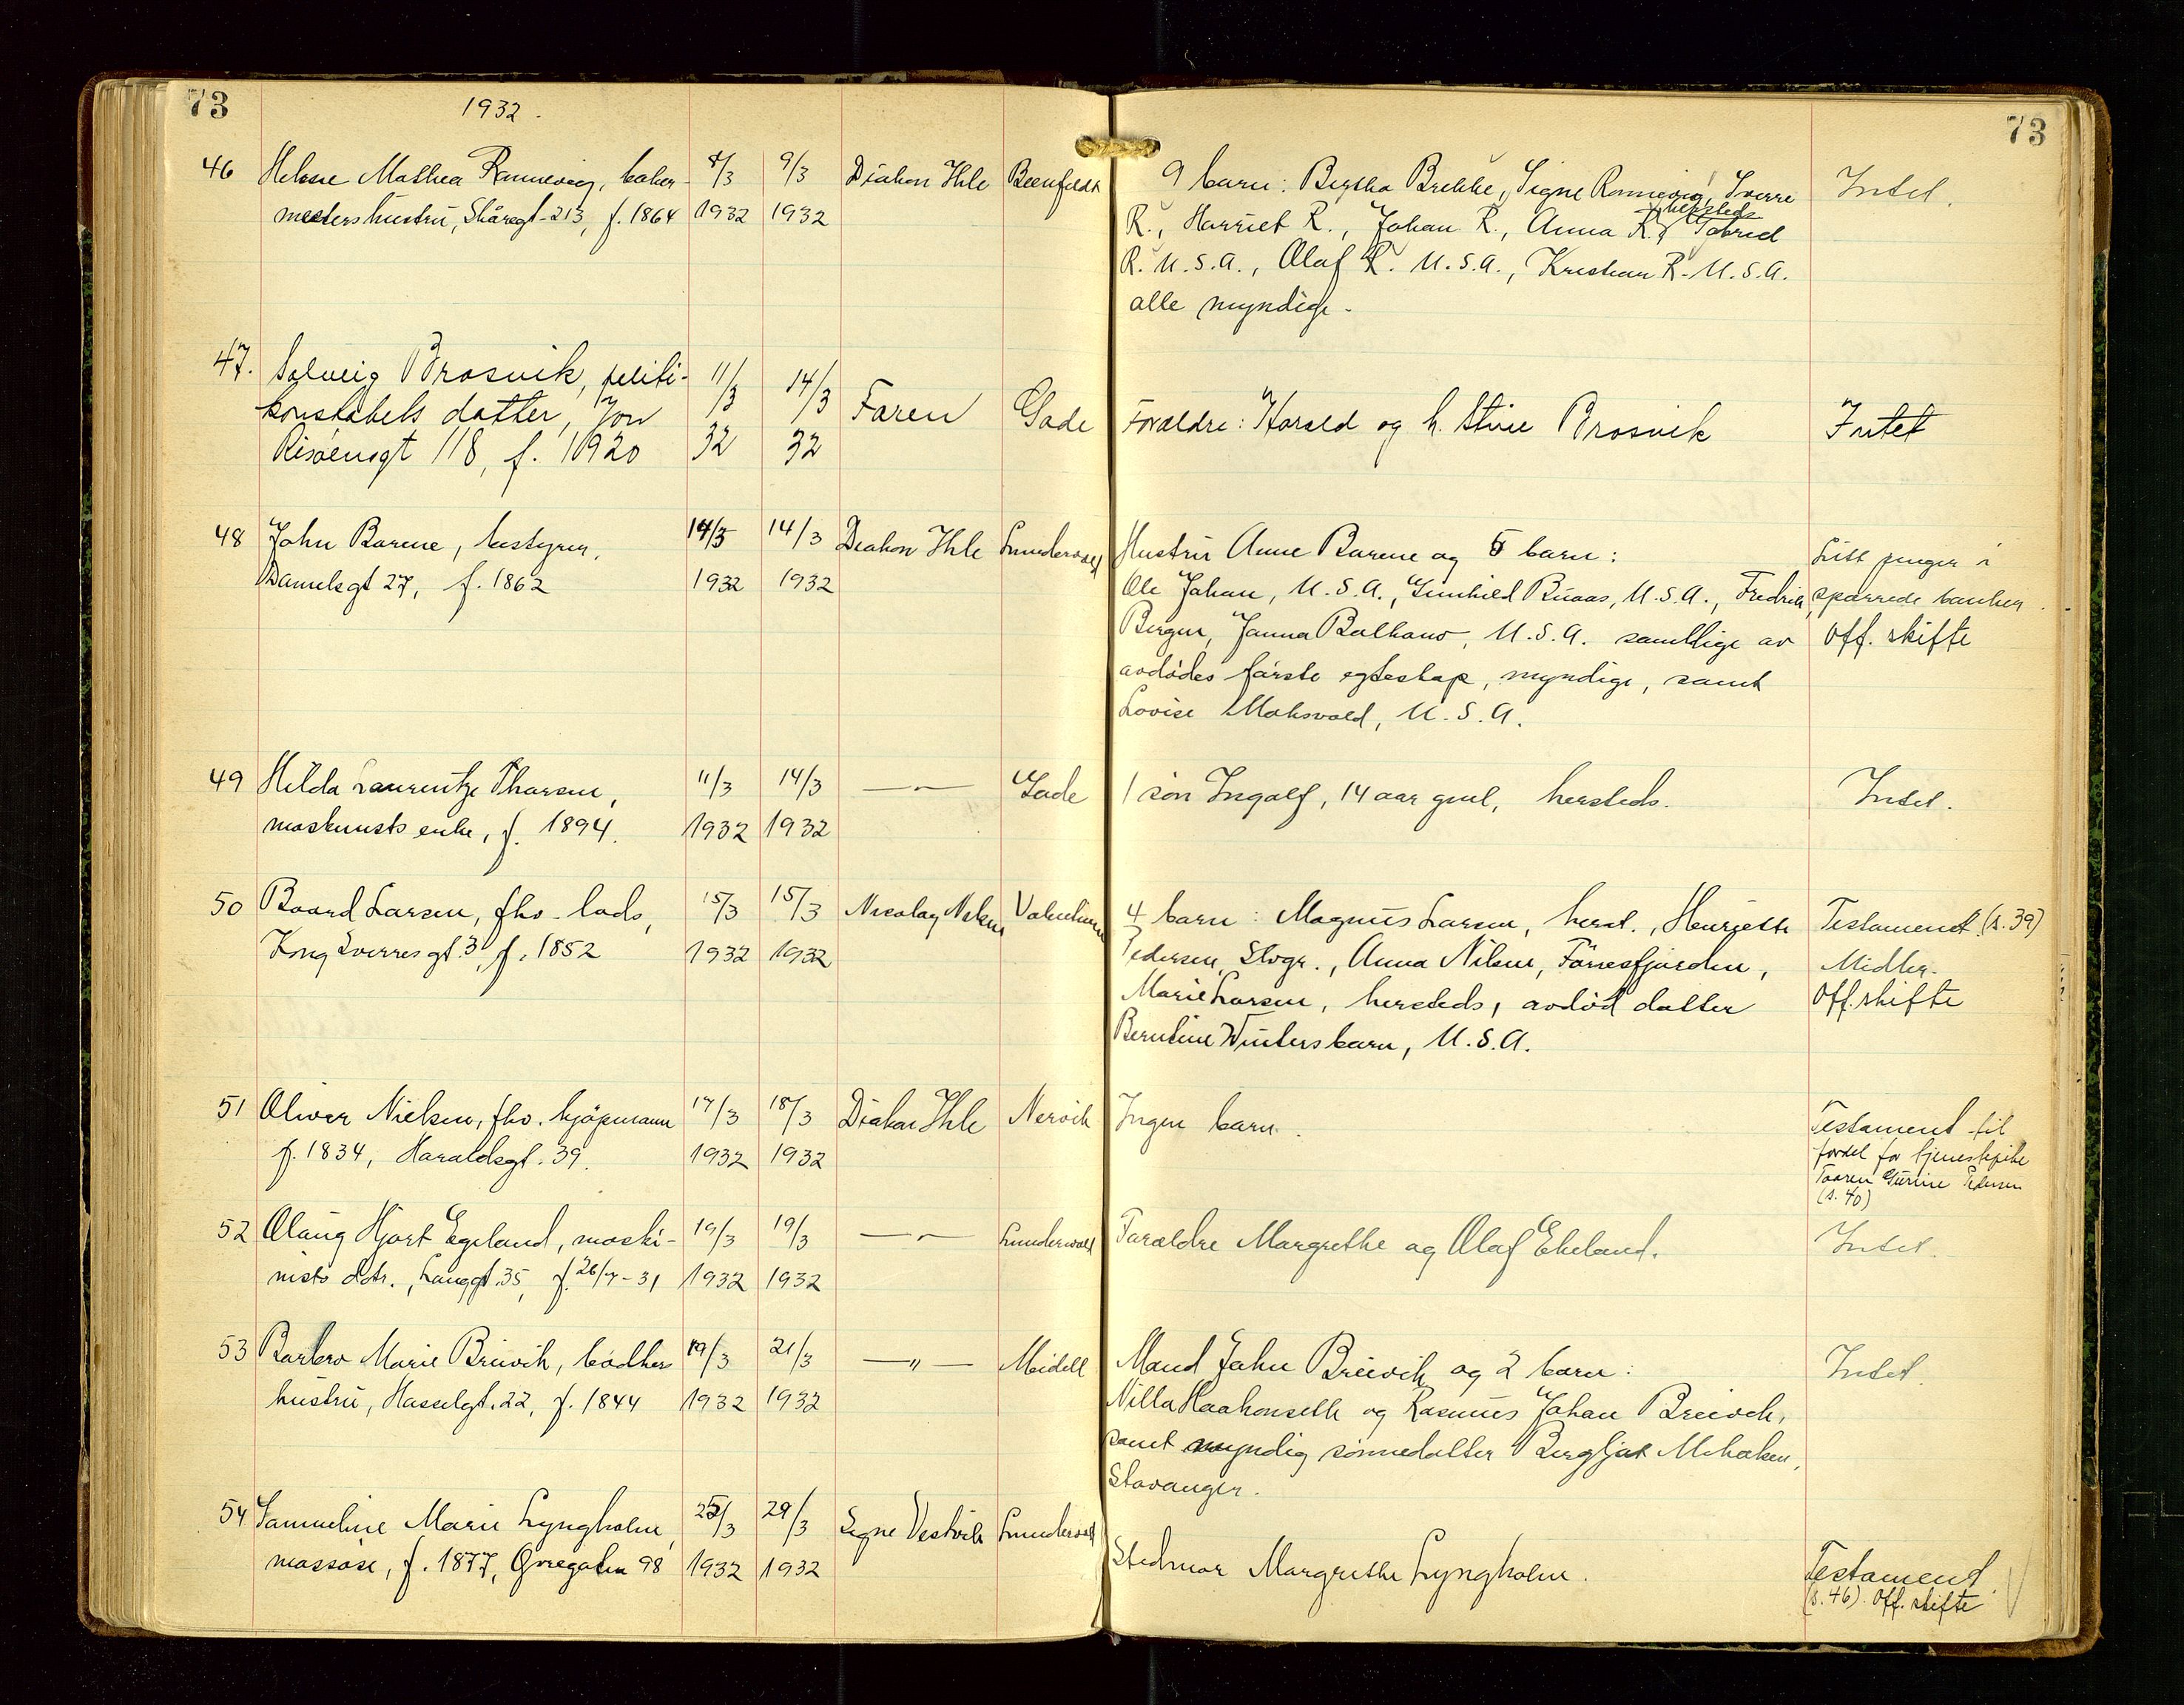 73 1932. 73
46 Helene Mathea Rønnevig, baker- 8/3 9/3 Diakon Ihle 9 barn: Bertha Brekke, Signe Rønnevig, Sverre Intet.
mesters hustru, Skåregt. 213, f. 1864 1932 1932 R., Harriet R., Johan R., Anna R. hersteds
R. U.S.A., Olaf R. U.S.A., Kristian R. U.S.A.
alle myndige.
47. Solveig Brosvik, politi- 11/3 14/3
konstabels datter, Jon Faren Gade Foreldre: Harald og h. Stine Brosvik Intet
Risøensgt 118, f. 1920 32 32
48 John Barene, bestyrer, 14/3 14/3 Diakon Ihle Hustru Anne Barene og 5 barn: Litt penger i
Damelsgt 27, f. 1862 1932 1932 Ole Johan, U.S.A., Gunhild Buaas, U.S.A., Fredrik sparrede banker
Bergen, Janna U.S.A. samtlige av Off. skifte
avdødes første egteskap, myndige, samt
Lovise U.S.A.
49 Hilda Laurentze Tharsen, 11/3 14/3 —"— Gade 1 søn Ingolf, 14 aar gml, hersteds. Intet.
maskinists enke, f. 1894. 1932 1932
50 Baard Larsen, fhv. lods, 15/3 15/3 Nicolay 4 barn: Magnus Larsen, herst., Henriette Testament (s. 39)
Kong Sverres gt. 3, f. 1852 1932 1932 Pedersen, Stvgr., Anna Nilsen, Førresfjorden, Midler.
Marie Larsen, hersteds, avdød datter Off. skifte
Berntine Winters barn, U.S.A.
51 Oliver Nielsen, fhv. kjøpmann 17/3 18/3 Diakon Ihle Nervik Ingen barn. Testament til
f. 1834, Haraldsgt. 39. 1932 1932 fordel for tjenestepike
Taaren Gurine Pedersen
(s. 40)
52 Olaug Hjort Egeland, maski- 19/3 19/3 —"— Foraldre Margrethe og Olaf Ekeland. Intet.
nists dtr., Langgt. 35, f. 26/7-31 1932 1932
53 Barbro Marie Breivik, bødker 19/3 21/3 —"— Meidell Mand John Breivik og 2 barn: Intet.
hustru, Hasselgt. 22, f. 1844 1932 1932 Nilla Haakonseth og Rasmus Johan Breivik,
samt myndig sønnedatter Bergljot
Stavanger.
54 Samueline Marie Lyngholm, 25/3 29/3 Signe Vestvik
massøse, f. 1877, 98 1932 1932 Stedmor Margrethe Lyngholm. Testament.
(s. 46). Off. skifte